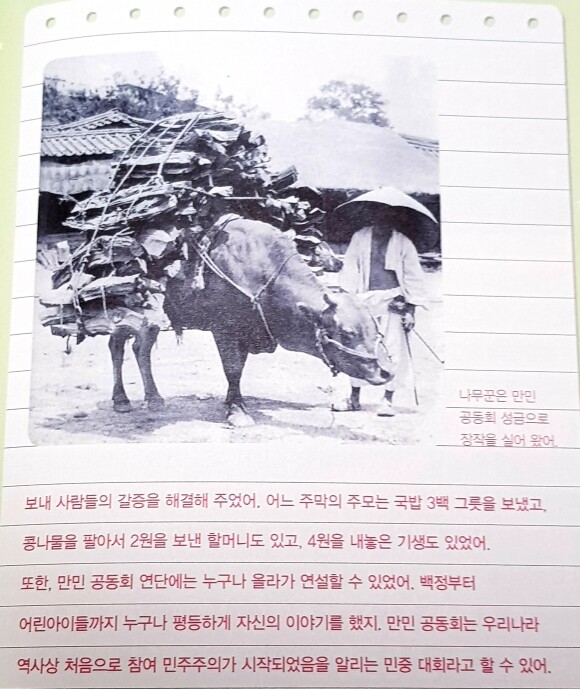 나무꾼은 만민
공동회 성금으로
장작을 실어 왔어.
보내 사람들의 갈증을 해결해 주었어. 어느 주막의 주모는 국밥 3백 그릇을 보냈고,
콩나물을 팔아서 2원을 보낸 할머니도 있고, 4원을 내놓은 기생도 있었어.
또한, 만민 공동회 연단에는 누구나 올라가 연설할 수 있었어. 백정부터
어린아이들까지 누구나 평등하게 자신의 이야기를 했지. 만민 공동회는 우리나라
역사상 처음으로 참여 민주주의가 시작되었음을 알리는 민중 대회라고 할 수 있어.